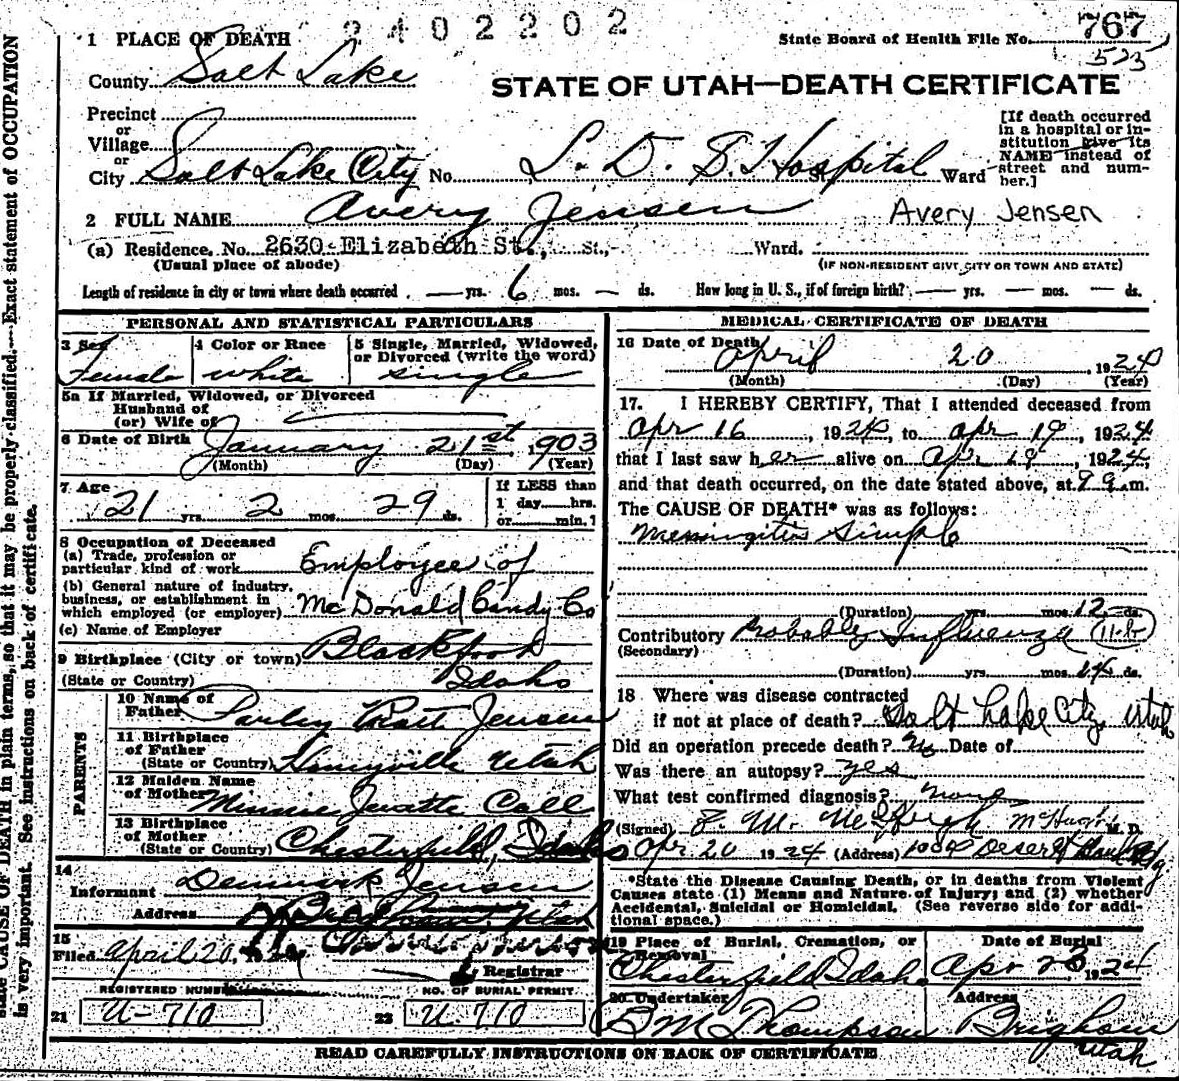 2402202
1 PLACE OF DEATH
State Board of Health File No. 767
523
County Salt Lake
STATE OF UTAH—DEATH CERTIFICATE
Precinct
or
Village
or
City Salt Lake City No. L. D. S. Hospital St. Ward
[If death occurred in a hospital or institution give its NAME instead of street and number.]
2 FULL NAME Avery Jensen
Avery Jensen
(a) Residence. No. 2630 Elizabeth St., St., Ward.
(Usual place of abode)
(IF NON-RESIDENT GIVE CITY OR TOWN AND STATE)
Length of residence in city or town where death occurred — yrs. 6 mos. — ds. How long in U. S., if of foreign birth? — yrs. — mos. — ds.
PERSONAL AND STATISTICAL PARTICULARS
3 Sex
Female
4 Color or Race
white
5 Single, Married, Widowed, or Divorced (write the word)
single
5a If Married, Widowed, or Divorced
Husband of
(or) Wife of
6 Date of Birth January 21st, 1903
(Month) (Day) (Year)
7 Age
21 yrs. 2 mos. 29 ds.
If LESS than
1 day hrs.
or min.?
8 Occupation of Deceased
(a) Trade, profession or particular kind of work Employee of
(b) General nature of industry, business, or establishment in which employed (or employer) McDonald Candy Co
(c) Name of Employer
9 Birthplace (City or town) Blackfoot
(State or Country) Idaho
PARENTS
10 Name of Father Parley Pratt Jensen
11 Birthplace of Father (State or Country) Honeyville Utah
12 Maiden Name of Mother Minnie Call
13 Birthplace of Mother (State or Country) Chesterfield, Idaho
14
Informant Denmark Jensen
Address Utah
15
Filed April 20, 1924
Registrar
REGISTERED NUMBER
NO. OF BURIAL PERMIT
21 U-710
22 U. 710
MEDICAL CERTIFICATE OF DEATH
16 Date of Death April 20, 1924
(Month) (Day) (Year)
17. I HEREBY CERTIFY, That I attended deceased from
Apr 16, 1924, to Apr 19, 1924
that I last saw her alive on Apr 19, 1924,
and that death occurred, on the date stated above, at 9 a.m.
The CAUSE OF DEATH* was as follows:
Meningitis Simple
(Duration) yrs. mos. 12 ds.
Contributory Probably Influenza (11-b)
(Secondary)
(Duration) yrs. mos. 14 ds.
18 Where was disease contracted
if not at place of death? Salt Lake City, Utah
Did an operation precede death? No Date of
Was there an autopsy? yes
What test confirmed diagnosis? none
(Signed) F. M. McHugh McHugh M. D.
Apr 20 1924 (Address) Deseret Bank Bldg
*State the Disease Causing Death, or in deaths from Violent
Causes state (1) Means and Nature of Injury; and (2) whether
Accidental, Suicidal or Homicidal. (See reverse side for additional space.)
19 Place of Burial, Cremation, or Removal
Chesterfield Idaho
Date of Burial
Apr 1924
20 Undertaker
B M Thompson
Address
Brigham Utah
READ CAREFULLY INSTRUCTIONS ON BACK OF CERTIFICATE
state CAUSE OF DEATH in plain terms, so that it may be properly classified.—Exact statement of OCCUPATION
is very important. See instructions on back of certificate.